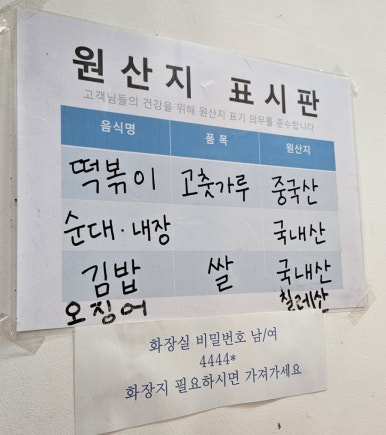 원산지 표시판
고객님들의 건강을 위해 원산지 표기 의무를 준수합니다
음식명 품목 원산지
떡볶이 고춧가루 중국산
순대·내장 국내산
김밥 쌀 국내산
오징어 칠레산
화장실 비밀번호 남/여
4444*
화장지 필요하시면 가져가세요